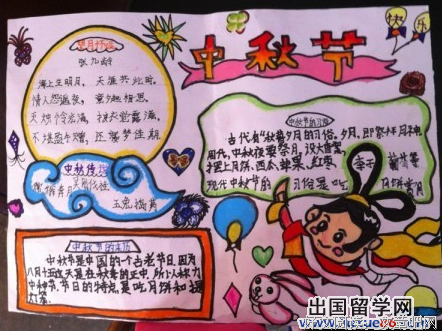 中秋节
快乐
望月怀远
张九龄
海上生明月，天涯共此时。
情人怨遥夜，竟夕起相思。
灭烛怜光满，披衣觉露滋。
不堪盈手赠，还寝梦佳期
中秋传说
嫦娥奔月 吴刚伐桂
玉兔捣药
中秋节的习俗
古代有"秋暮夕月的习俗。夕月，即祭拜月神
周代，中秋夜要祭月，设大香案，
摆上月饼、西瓜、苹果、红枣、李子、葡萄等
现代中秋节的习俗是吃月饼赏月
中秋节的来历
中秋节是中国的一个古老节日，因为
八月十五这天是在秋季的正中，所以称为
中秋节。节日的特色是吃月饼和提
灯笼。
出国留学网